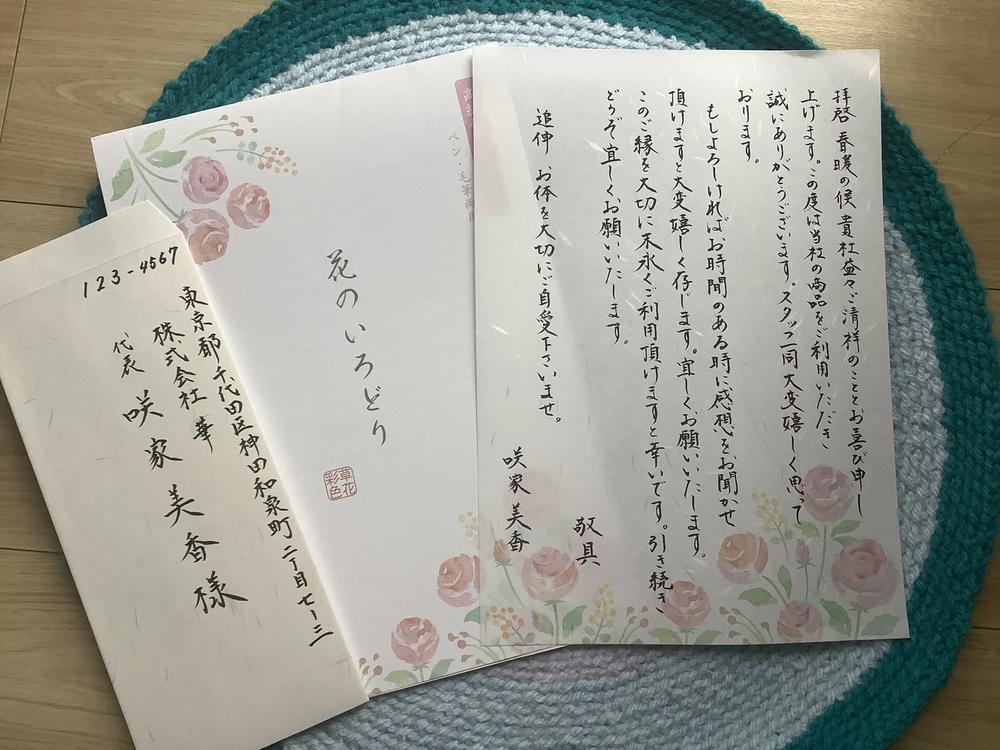 拝啓 春暖の候 貴社益々ご清祥のこととお喜び申し
上げます。この度は当社の商品をご利用いただき
誠にありがとうございます。スタッフ一同大変嬉しく思って
おります。
もしよろしければお時間のある時に感想をお聞かせ
頂けますと大変嬉しく存じます。宜しくお願いいたします。
このご縁を大切に末永くご利用頂けますと幸いです。引き続き
どうぞ宜しくお願いいたします。
敬具
追伸 お体を大切にご自愛下さいませ。
咲家美香
高級
ペン・毛筆両用
花のいろどり
草花
彩色
123-4567
東京都千代田区神田和泉町二丁目七ー三
株式会社 華
代表 咲家美香様